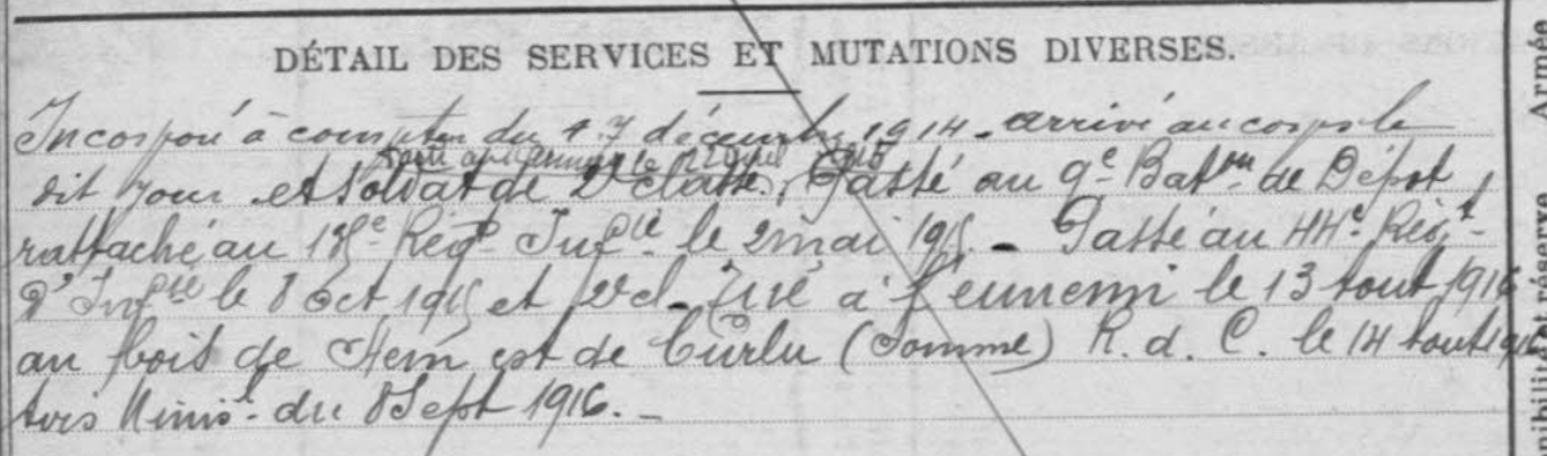 DÉTAIL DES SERVICES ET MUTATIONS DIVERSES.
Incorporé à compter du 17 décembre 1914. arrivé au corps le
Parti aux armées le 12 avril 1915
dit jour et soldat de 2e classe. Passé au 9e Baton de Dépot
rattaché au 18e Régt Infie le 2 mai 1915. - Passé au 44e Régt
d'Infie le 8 Oct 1915 et 2e cl. Tué à l'ennemi le 13 Aout 1916
au bois de Hem est de Curlu (Somme) R. d. C. le 14 Aout 1916
Avis Minist. du 8 Sept 1916. -
Armée
et réserve